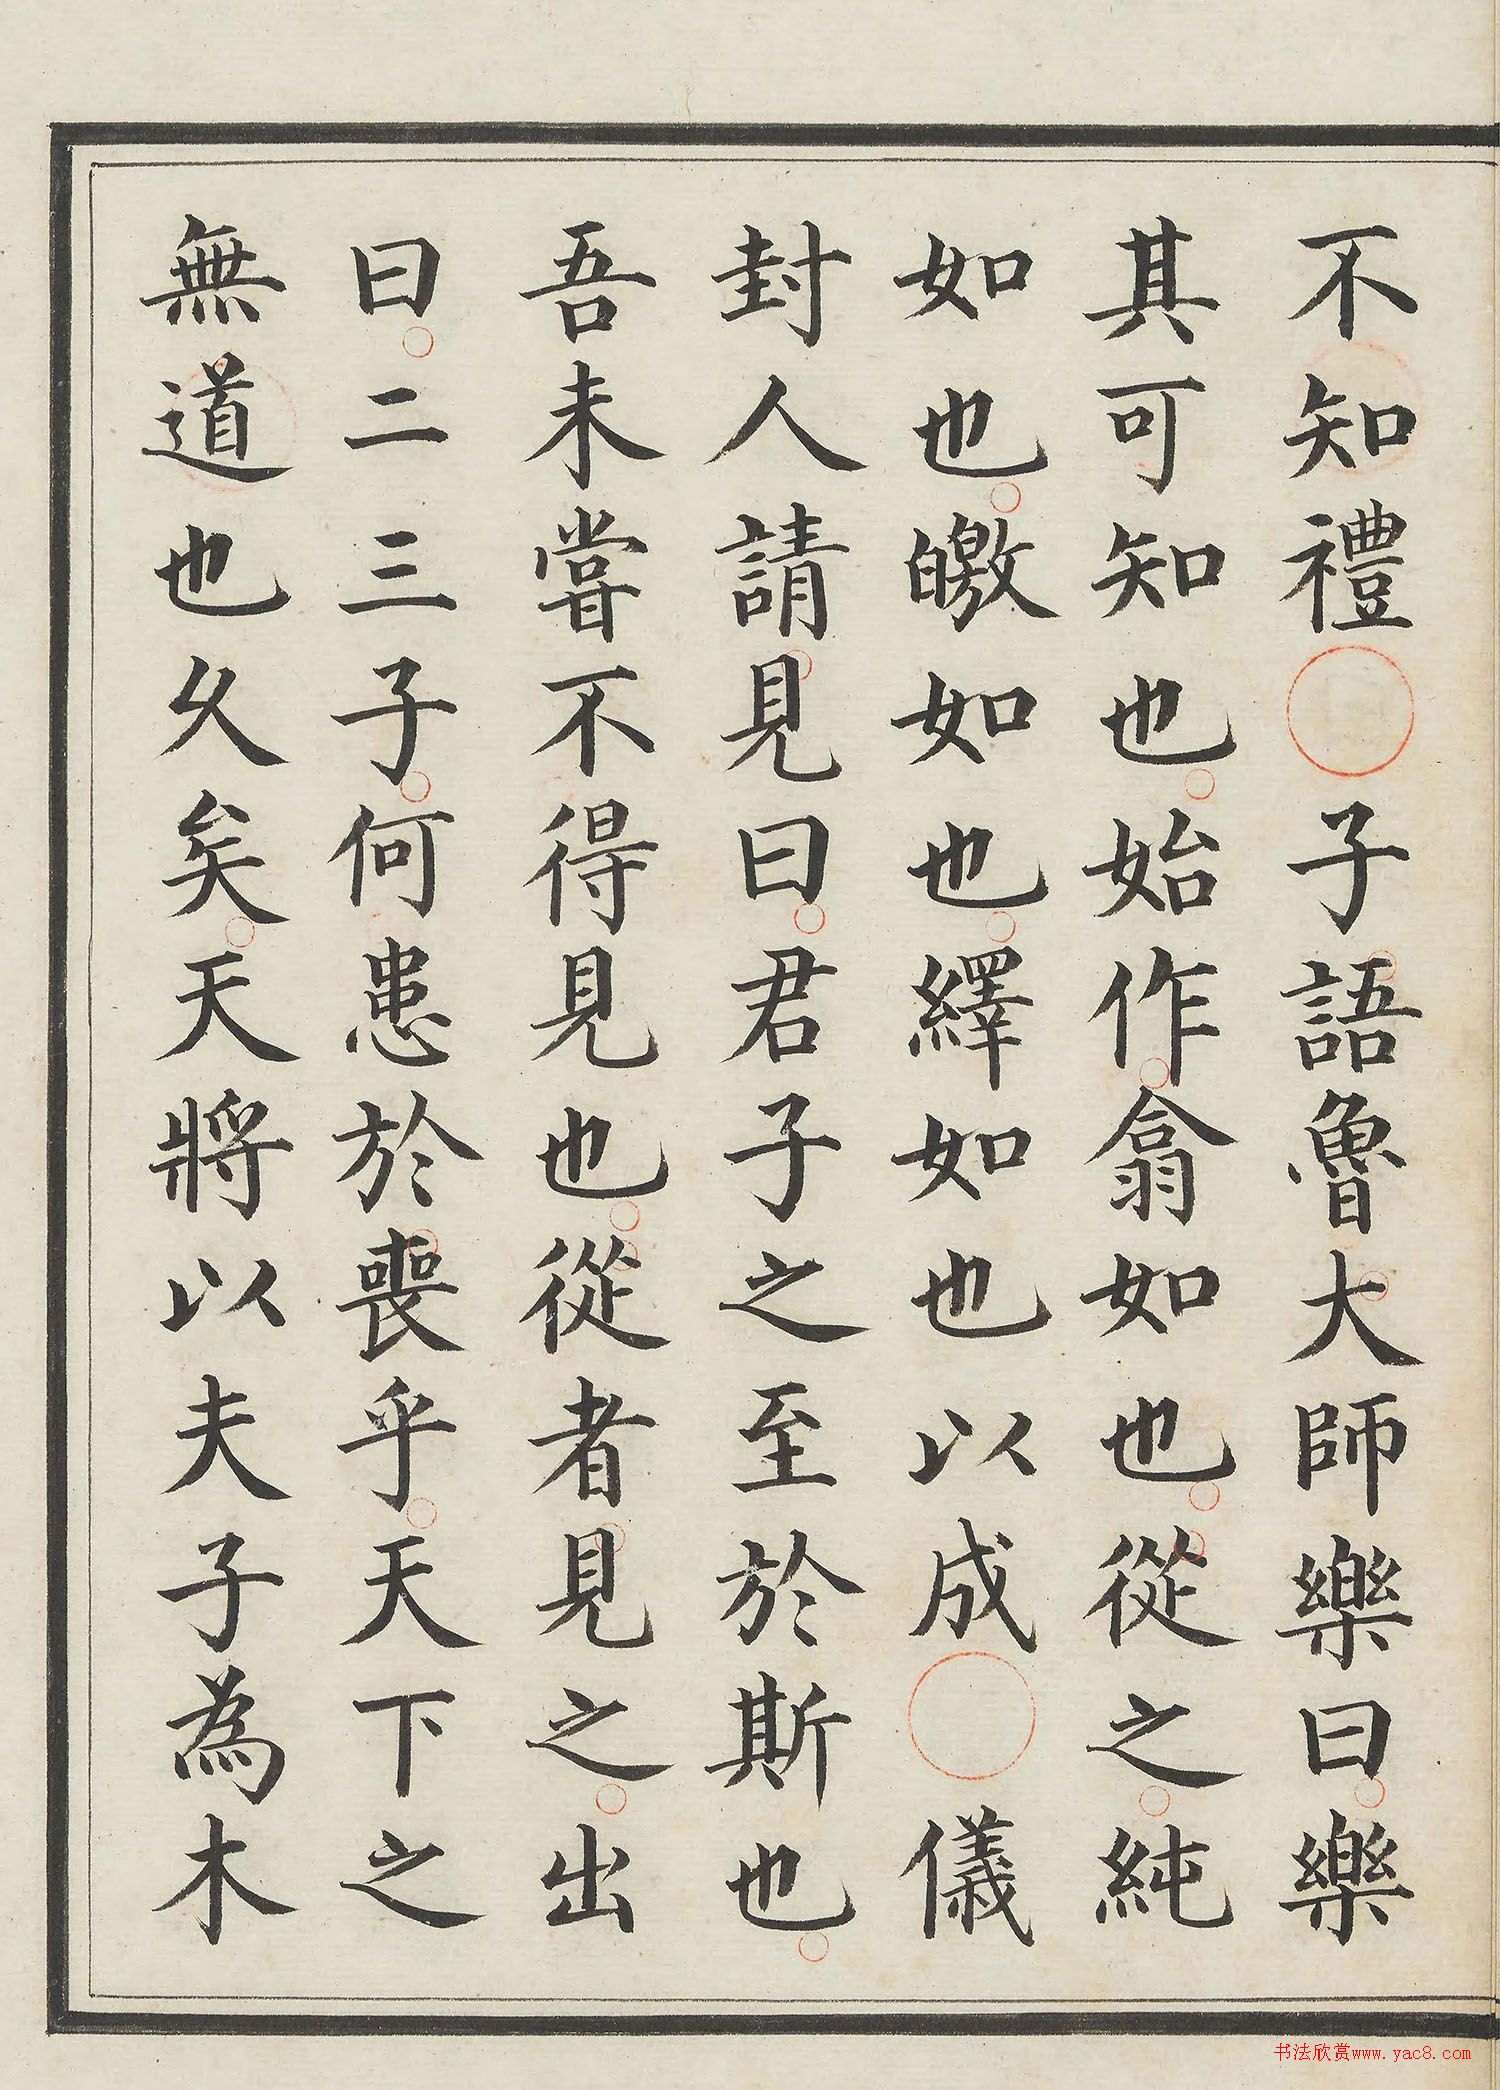 不知禮○子語魯大師樂曰樂
其可知也始作翕如也從之純
如也皦如也繹如也以成○儀
封人請見曰君子之至於斯也
吾未嘗不得見也從者見之出
曰二三子何患於喪乎天下之
無道也久矣天將以夫子為木
书法欣赏www.yac8.com